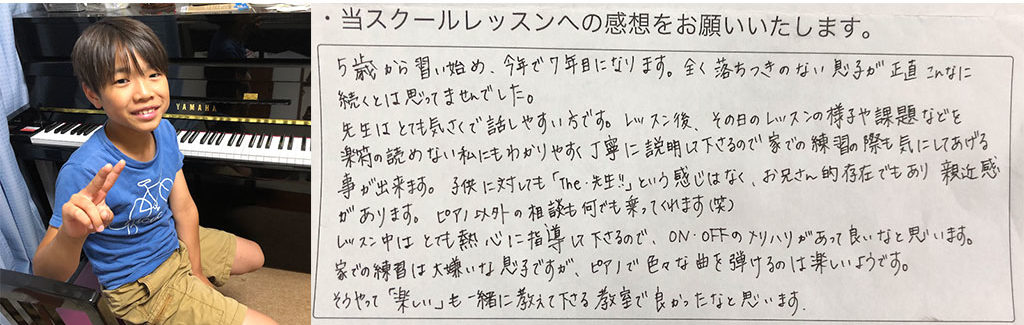 YAMAHA
・当スクールレッスンへの感想をお願いいたします。
5歳から習い始め、今年で7年目になります。全く落ちつきのない息子が正直こんなに
続くとは思ってませんでした。
先生はとても気さくで話しやすい方です。レッスン後、その日のレッスンの様子や課題などを
楽符の読めない私にもわかりやすく丁寧に説明して下さるので家での練習の際も気にしてあげる
事が出来ます。子供に対しても「The・先生!!」という感じはなく、お兄さん的存在でもあり親近感
があります。ピアノ以外の相談も何でも乗ってくれます(笑)
レッスン中はとても熱心に指導して下さるので、ON・OFFのメリハリがあって良いなと思います。
家での練習は大嫌いな息子ですが、ピアノで色々な曲を弾けるのは楽しいようです。
そうやって「楽しい」も一緒に教えて下さる教室で良かったなと思います.